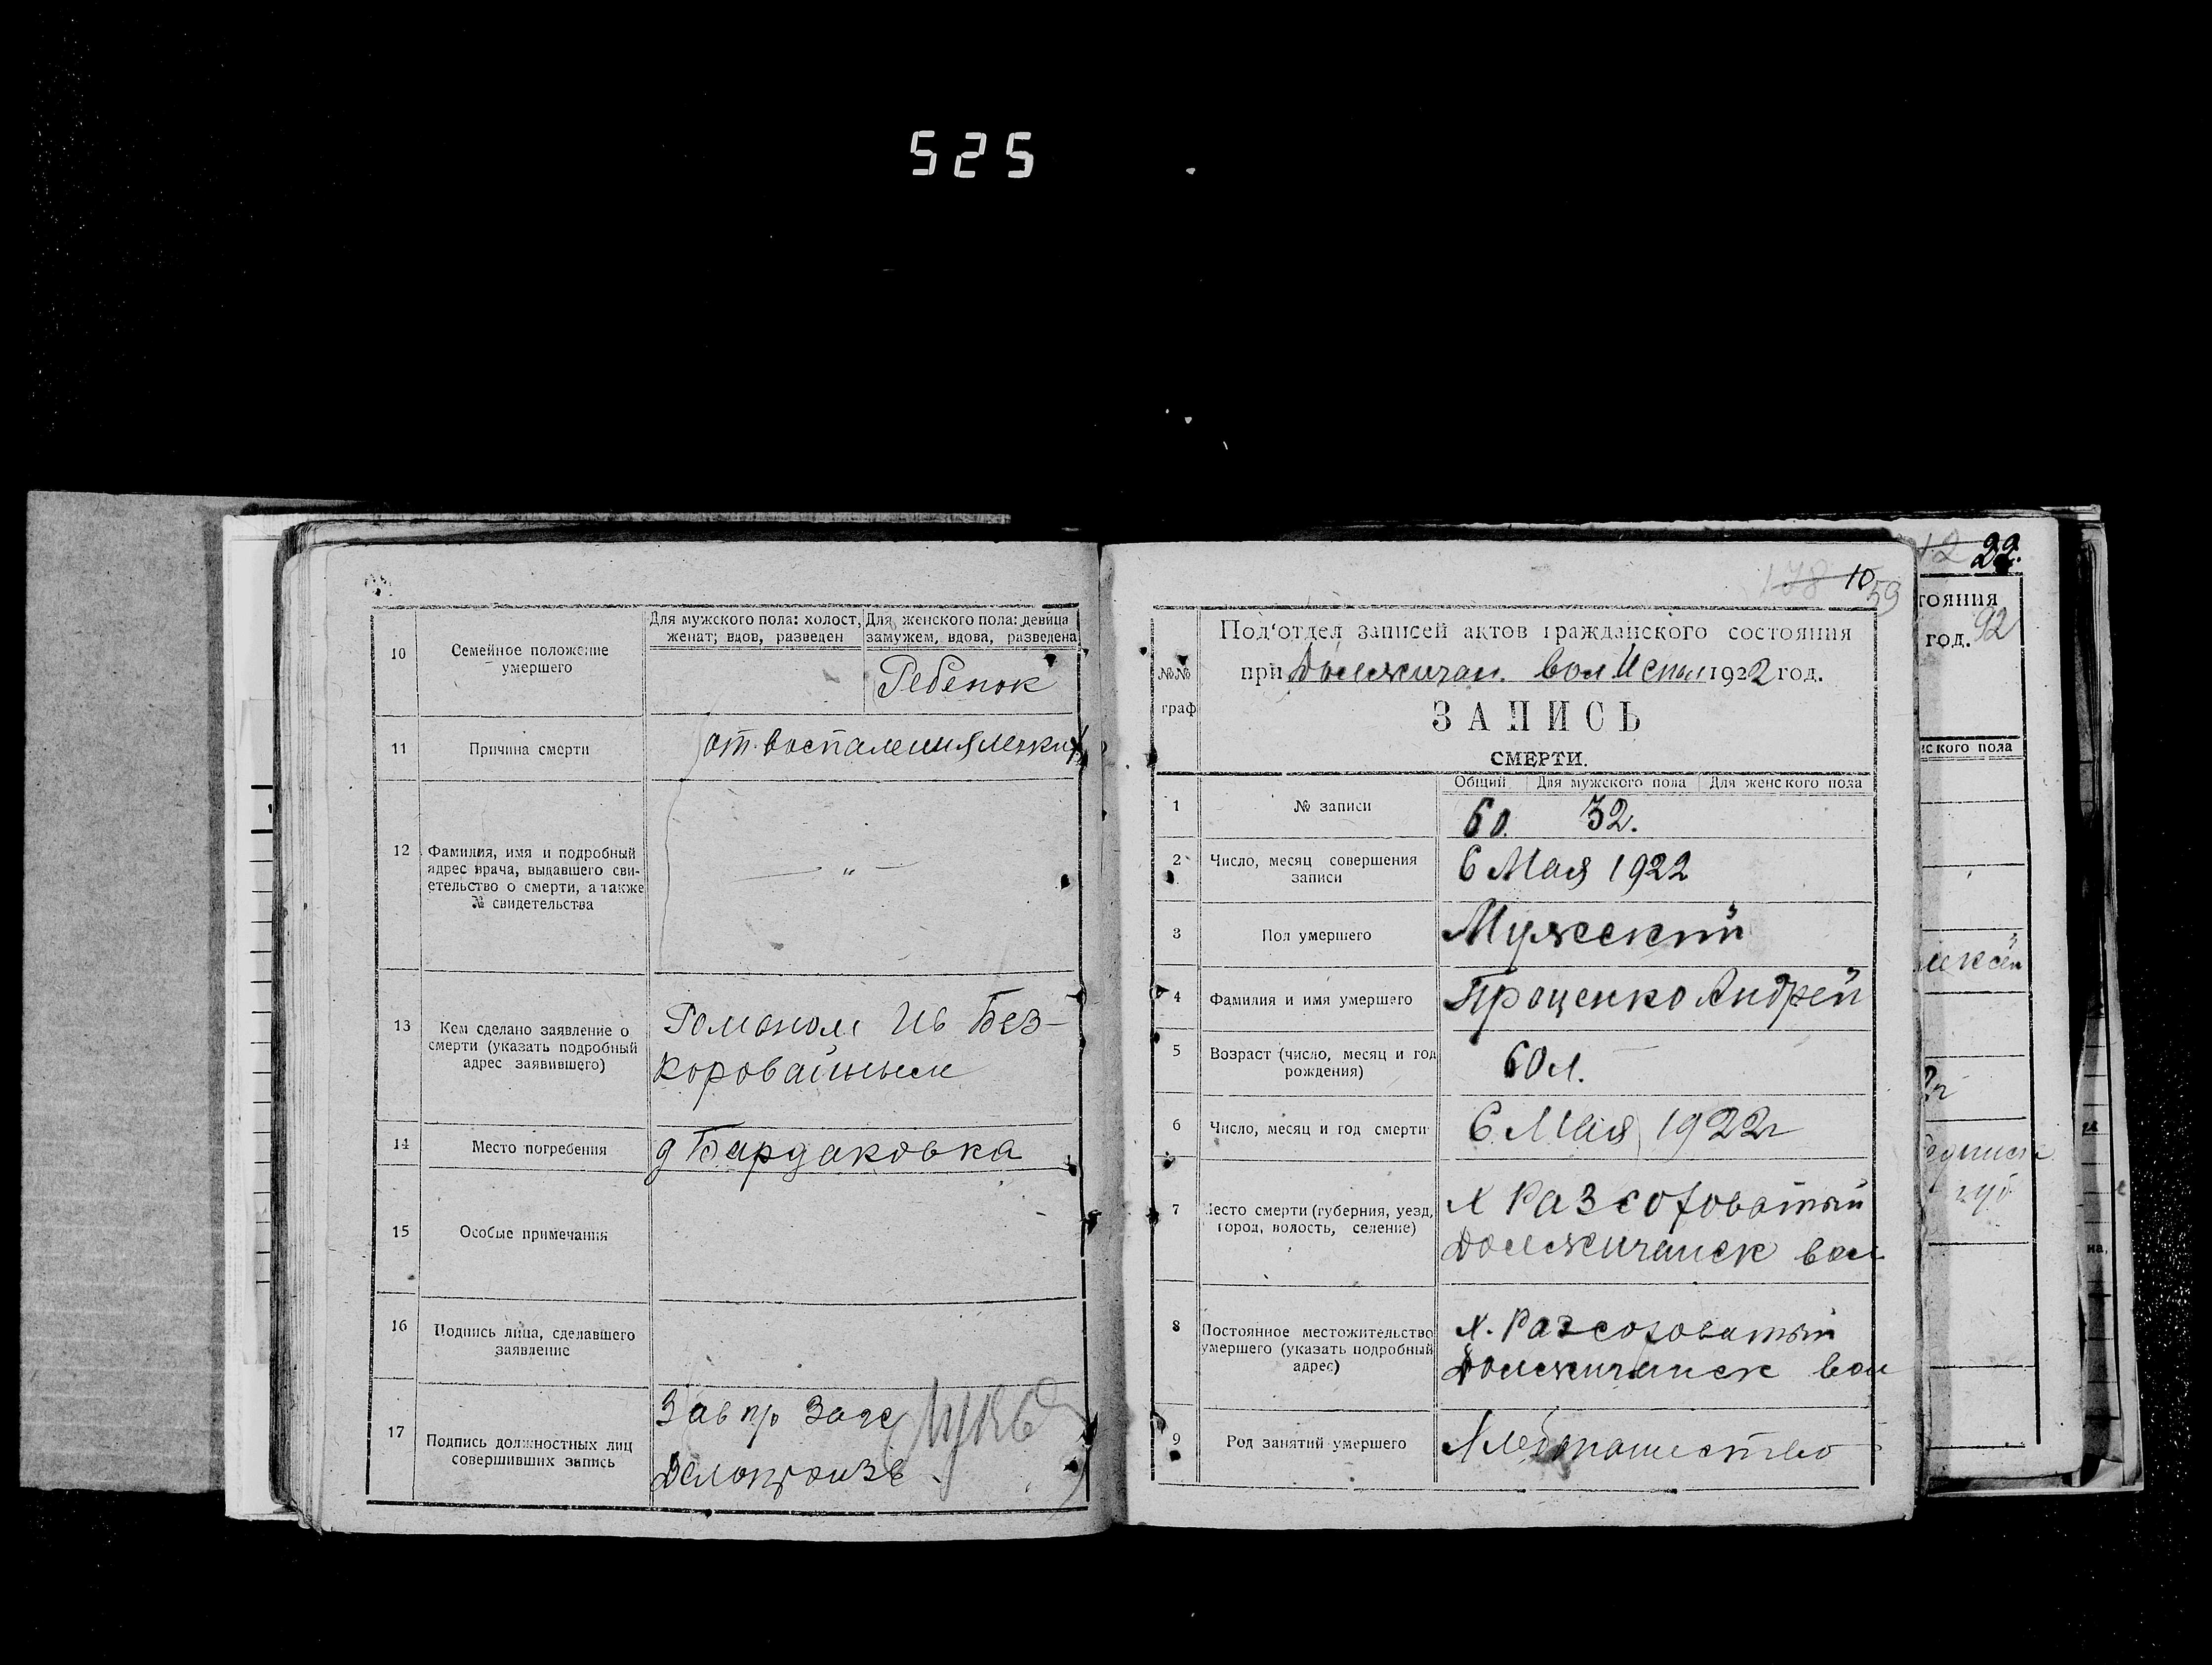 525
10
Семейное положение
умершего
Для мужского пола: холост,
женат; вдов, разведен
Для женского пола: девица
замужем, вдова, разведена
Ребенок
11
Причина смерти
от воспаления легких
12
Фамилия, имя и подробный
адрес врача, выдавшего сви-
етельство о смерти, а также
№ свидетельства
— „ —
13
Кем сделано заявление о
смерти (указать подробный
адрес заявившего)
Романом Ив Без-
коровайным
14
Место погребения
д Бардаковка
15
Особые примечания
16
Подпись лица, сделавшего
заявление
17
Подпись должностных лиц
совершивших запись
Зав п/о Загс
Делопроизв
178 10
59
№№
граф
Под‘отдел записей актов гражданского состояния
при Должичан. вол Испол 1922 год.
ЗАПИСЬ
СМЕРТИ.
Общий Для мужского пола Для женского пола
1
№ записи
60. 32.
2
Число, месяц совершения
записи
6 Мая 1922
3
Пол умершего
Мужеский
4
Фамилия и имя умершего
Проценко Андрей
5
Возраст (число, месяц и год
рождения)
60 л.
6
Число, месяц и год смерти
6 Мая 1922 г
7
Место смерти (губерния, уезд,
город, волость, селение)
х Разсоховатый
Должичанск вол
8
Постоянное местожительство
умершего (указать подробный
адрес)
х. Разсоховатый
Должичанск вол
9
Род занятий умершего
Хлебопашество
22.
тояния
год.
92
ского пола